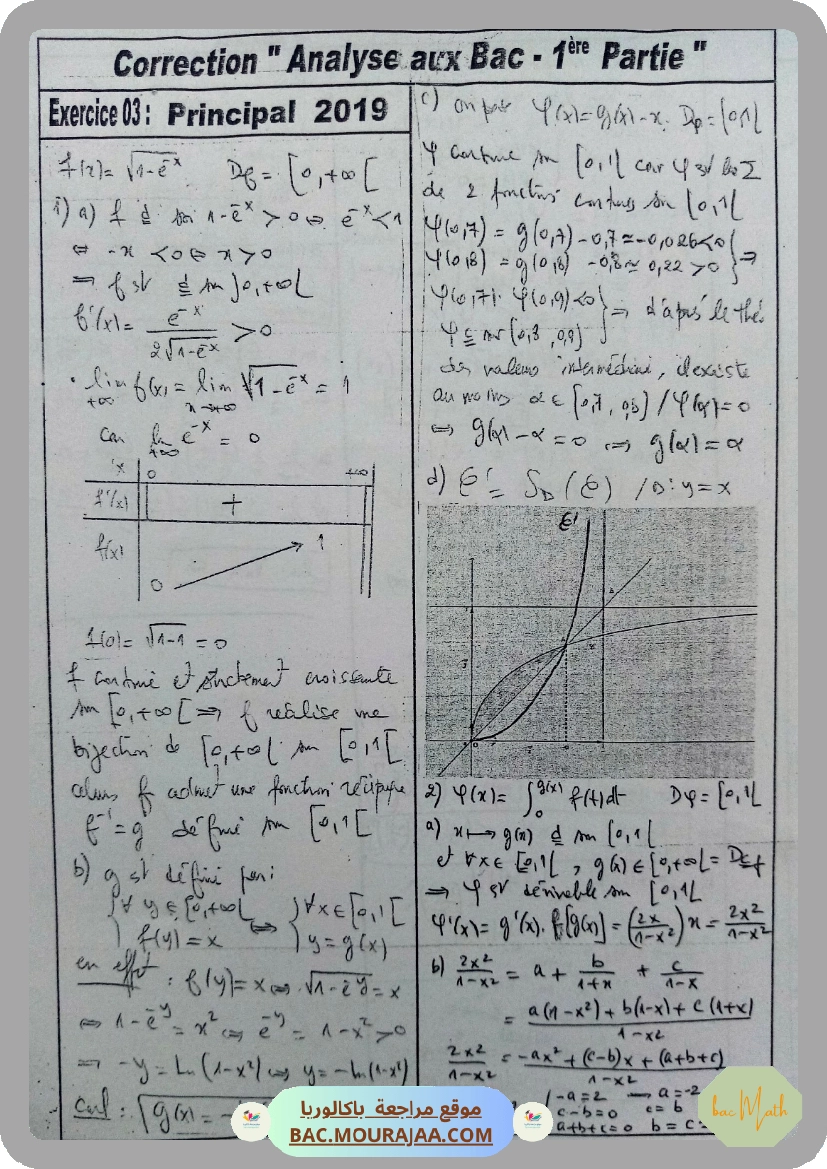 Correction " Analyse aux Bac - 1ère Partie "
Exercice 03 : Principal 2019
f(x) = √1-e^-x Df = [0,+∞[
1) a) f d sur 1-e^-x > 0 ⇔ e^-x < 1
⇔ -x < 0 ⇔ x > 0
⇒ f est d sur ]0,+∞[
f'(x) = e^-x / 2√1-e^-x > 0
• lim f(x) = lim √1-e^-x = 1
+∞ x→+∞
Car lim e^-x = 0
+∞
x 0 +∞
f'(x) +
f(x) 0 1
f(0) = √1-1 = 0
f continue et strictement croissante
sur [0,+∞[ ⇒ f réalise une
bijection de [0,+∞[ sur [0,1[
f admet une fonction réciproque
f^-1 = g définie sur [0,1[
b) g est définie par :
{ ∀ y ∈ [0,+∞[ ⇔ { ∀x ∈ [0,1[
f(y) = x y = g(x)
en effet : f(y) = x ⇔ √1-e^-y = x
⇔ 1-e^-y = x² ⇔ e^-y = 1-x² > 0
⇔ -y = Ln(1-x²) ⇔ y = -ln(1-x²)
Concl : g(x) = -
c) On pose φ(x) = g(x) - x. Dφ = [0,1[
φ continue sur [0,1[ car φ est la Σ
de 2 fonctions continues sur [0,1[
φ(0,7) = g(0,7) - 0,7 ≃ -0,026 < 0
φ(0,8) = g(0,8) - 0,8 ≃ 0,22 > 0 } ⇒
φ(0,7). φ(0,9) < 0
φ c sur [0,8 , 0,9] } ⇒ d'après le thé.
des valeurs intermédiaires, il existe
au moins α ∈ [0,7 , 0,8] / φ(α) = 0
⇔ g(α) - α = 0 ⇔ g(α) = α
d) C' = S_D (C) / D : y = x
C'
2) φ(x) = ∫₀^g(x) f(t)dt Dφ = [0,1[
a) x ↦ g(x) d sur [0,1[
et ∀x ∈ [0,1[ , g(x) ∈ [0,+∞[ = Dcf
⇒ φ est dérivable sur [0,1[
φ'(x) = g'(x). f[g(x)] = (2x/1-x²) x = 2x²/1-x²
b) 2x²/1-x² = a + b/1+x + c/1-x
= a(1-x²) + b(1-x) + c(1+x) / 1-x²
2x²/1-x² = -ax² + (c-b)x + (a+b+c) / 1-x²
-a = 2 → a = -2
c-b = 0 c = b
a+b+c = 0 b = c
موقع مراجعة باكالوريا
BAC.MOURAJAA.COM
bac Math